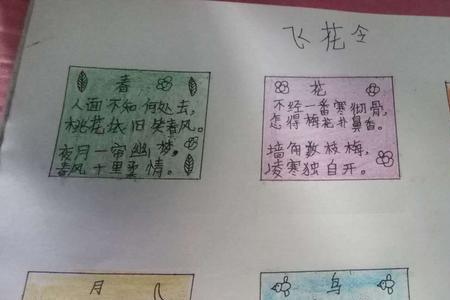 飞花令
春
人面不知何处去，
桃花依旧笑春风。
夜月一帘幽梦，
春风十里柔情。
花
不经一番寒彻骨，
怎得梅花扑鼻香。
墙角数枝梅，
凌寒独自开。
月
鸟